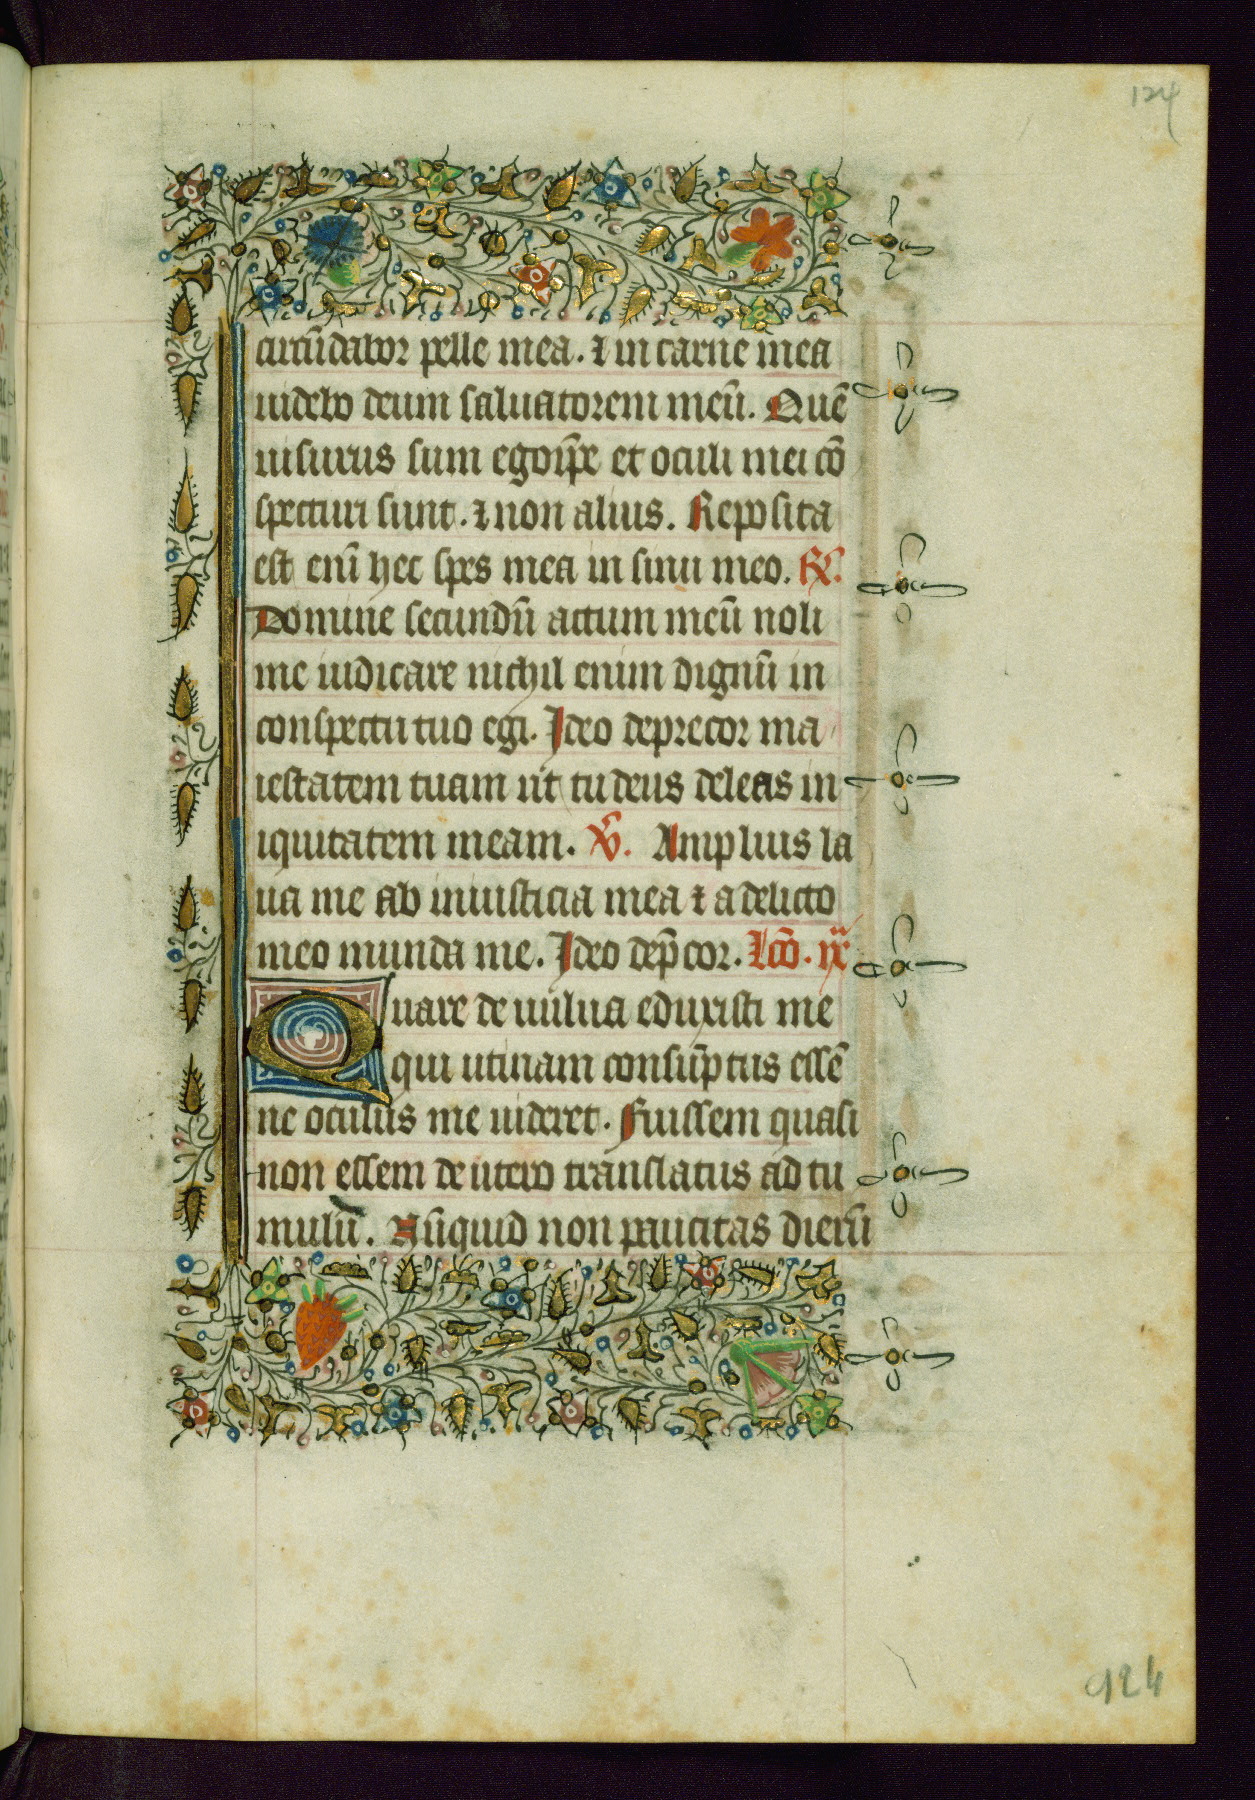 124
circūdabor pelle mea. ⁊ in carne mea
uidebo deum saluatorem meū. Quē
uisurus sum ego ip̄e et oculi mei cō
specturi sunt. ⁊ non alius. Reposita
est enī hec spes mea in sinu meo. R̸.
Domine secundū actum meū noli
me iudicare nichil enim dignū in
conspectu tuo egi. Ideo deprecor ma
iestatem tuam ut tu deus deleas in
iquitatem meam. V̄. Amplius la
ua me ab iniusticia mea ⁊ a delicto
meo munda me. Ideo dep̄cor. Lcō. ix
Quare de uulua eduxisti me
qui utinam consūptus essē
ne oculus me uideret. Fuissem quasi
non essem de utero translatus ad tu
mulū. Nūquid non paucitas dierū
924